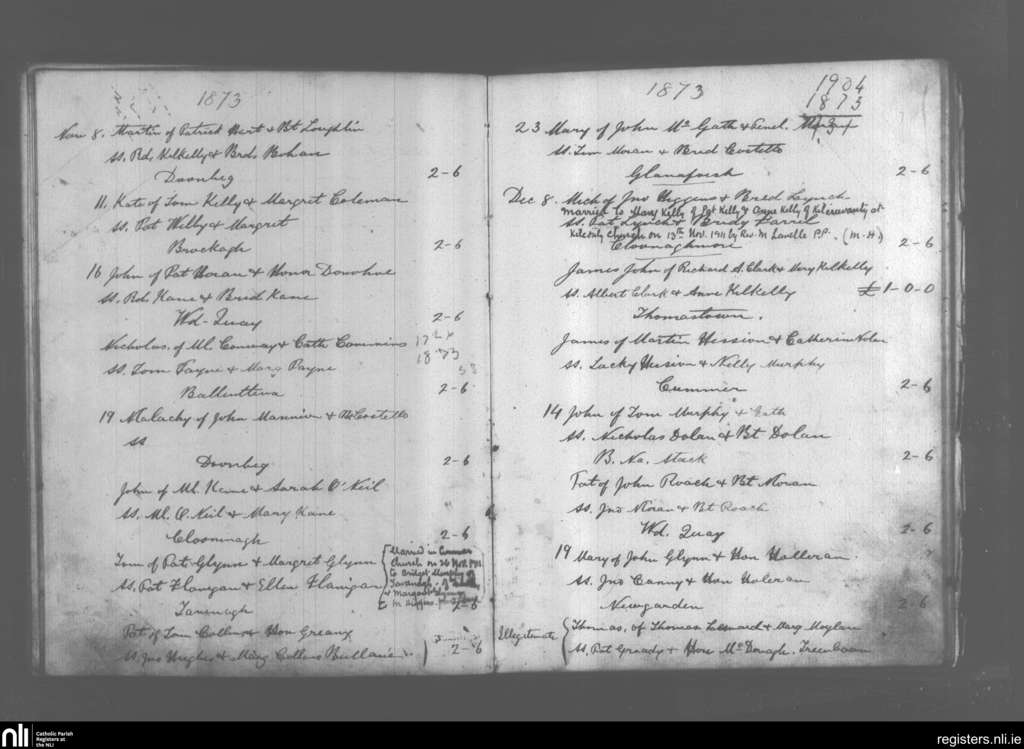 1873
Nov 8. Martin of Patrick Mort & Bt Loughlin
ss. Rd. Kilkelly & Brd. Bohan
Doonbeg 2-6
11. Kate of Tom Kelly & Margret Coleman
ss. Pat Kelly & Margret
Brockagh 2-6
16 John of Pat Moran & Honor Donohue
ss. Rd. Kane & Brid Kane
Wd-Quay 2-6
Nicholas of Ml. Conway & Cath Commins
ss. Tom Payne & Mary Payne
1873
53
2-6
19 Malachy of John Mannion & Costello
ss
Doonbeg 2-6
John of Ml. Kane & Sarah O'Neil
ss. Ml. O'Neil & Mary Kane
Cloonnagh 2-6
Tom of Pat Glynn & Margret Glynn
Married in Cummer
Church on
to Bridget Murphy of
& Margaret
M Higgins
ss. Pat Flanigan & Ellen Flanigan 2-6
Tavenagh
Pat of Tom Collins & Hon Greany
ss. Jno Hughes & Mary Collins 2-6
1873
1904
1873
31
23 Mary of John McGath & Mary
ss. Tom Moran & Brid Costello
2-6
Dec 8. Mich of Jno Higgins & Bred Lynch
married to Mary Kelly of Pat Kelly & Anne Kelly of at
ss. Pat Lynch & Bridy Farrel
Church on 13th Nov. 1911 by Rev. M Lavelle P.P. (M-H)
Cloonaghmore 2-6
James John of Richard A. Clark & Mary Kilkelly
ss. Albert Clark & Anne Kilkelly £1-0-0
Thomastown.
James of Martin Hession & Catherin Nolan
ss. Lacky Hession & Nelly Murphy
Cummer 2-6
14 John of Tom Murphy & Cath
ss. Nicholas Dolan & Bt Dolan
B. Na. Stack 2-6
Pat of John Roach & Bt Moran
ss. Jno Moran & Bt Roach
Wd. Quay 2-6
19 Mary of John Glynn & Hon Holleran
ss. Jno Canny & Hon Holeran
Newgarden 2-6
Illegitimate Thomas, of Thomas Leonard & Mary Moylan
ss. Pat Gready & Hon McDonagh.
nli
Catholic Parish
Registers at
the NLI
registers.nli.ie